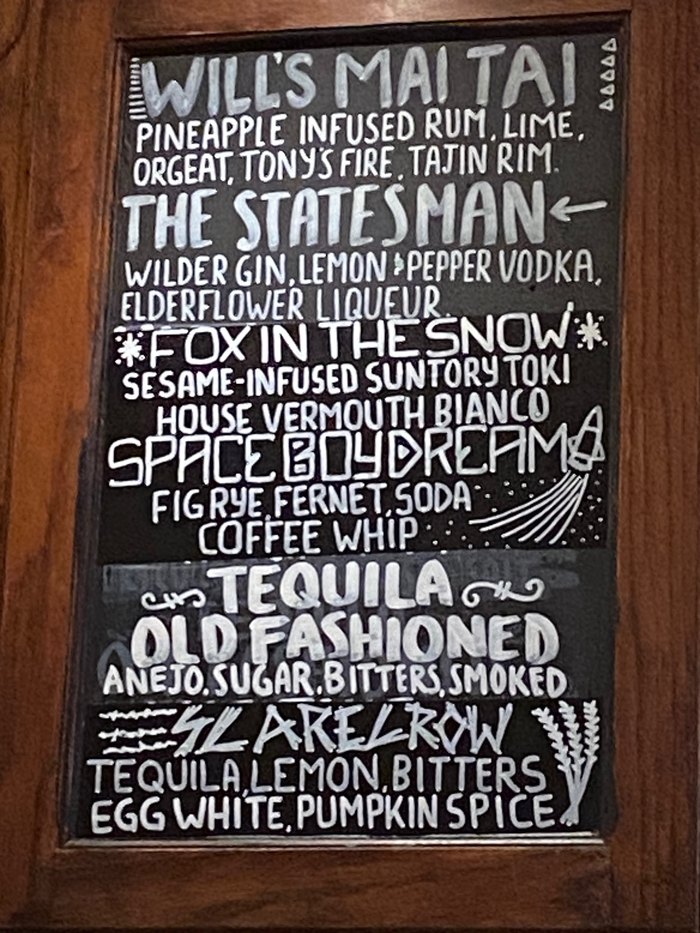 WILL'S MAI TAI
PINEAPPLE INFUSED RUM, LIME,
ORGEAT, TONY'S FIRE, TAJIN RIM.
THE STATESMAN
WILDER GIN, LEMON & PEPPER VODKA,
ELDERFLOWER LIQUEUR
FOX IN THE SNOW
SESAME-INFUSED SUNTORY TOKI
HOUSE VERMOUTH BIANCO
SPACE BOY DREAM
FIG RYE, FERNET, SODA
COFFEE WHIP
TEQUILA
OLD FASHIONED
ANEJO, SUGAR, BITTERS, SMOKED
SCARECROW
TEQUILA, LEMON, BITTERS
EGG WHITE, PUMPKIN SPICE